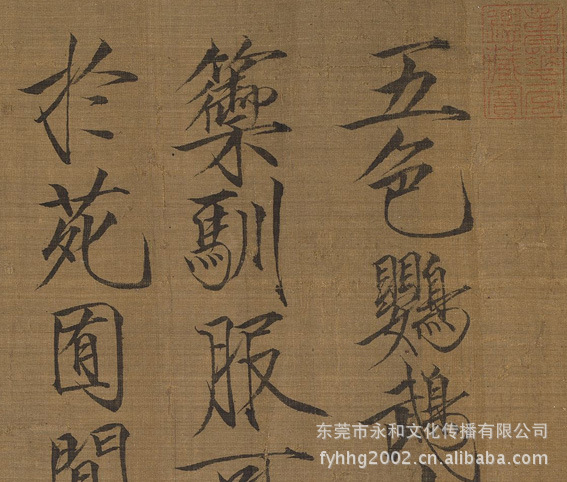 五色鸚鵡
籞馴服可
於苑囿間
东莞市永和文化传播有限公司
fyhhg2002.cn.alibaba.com